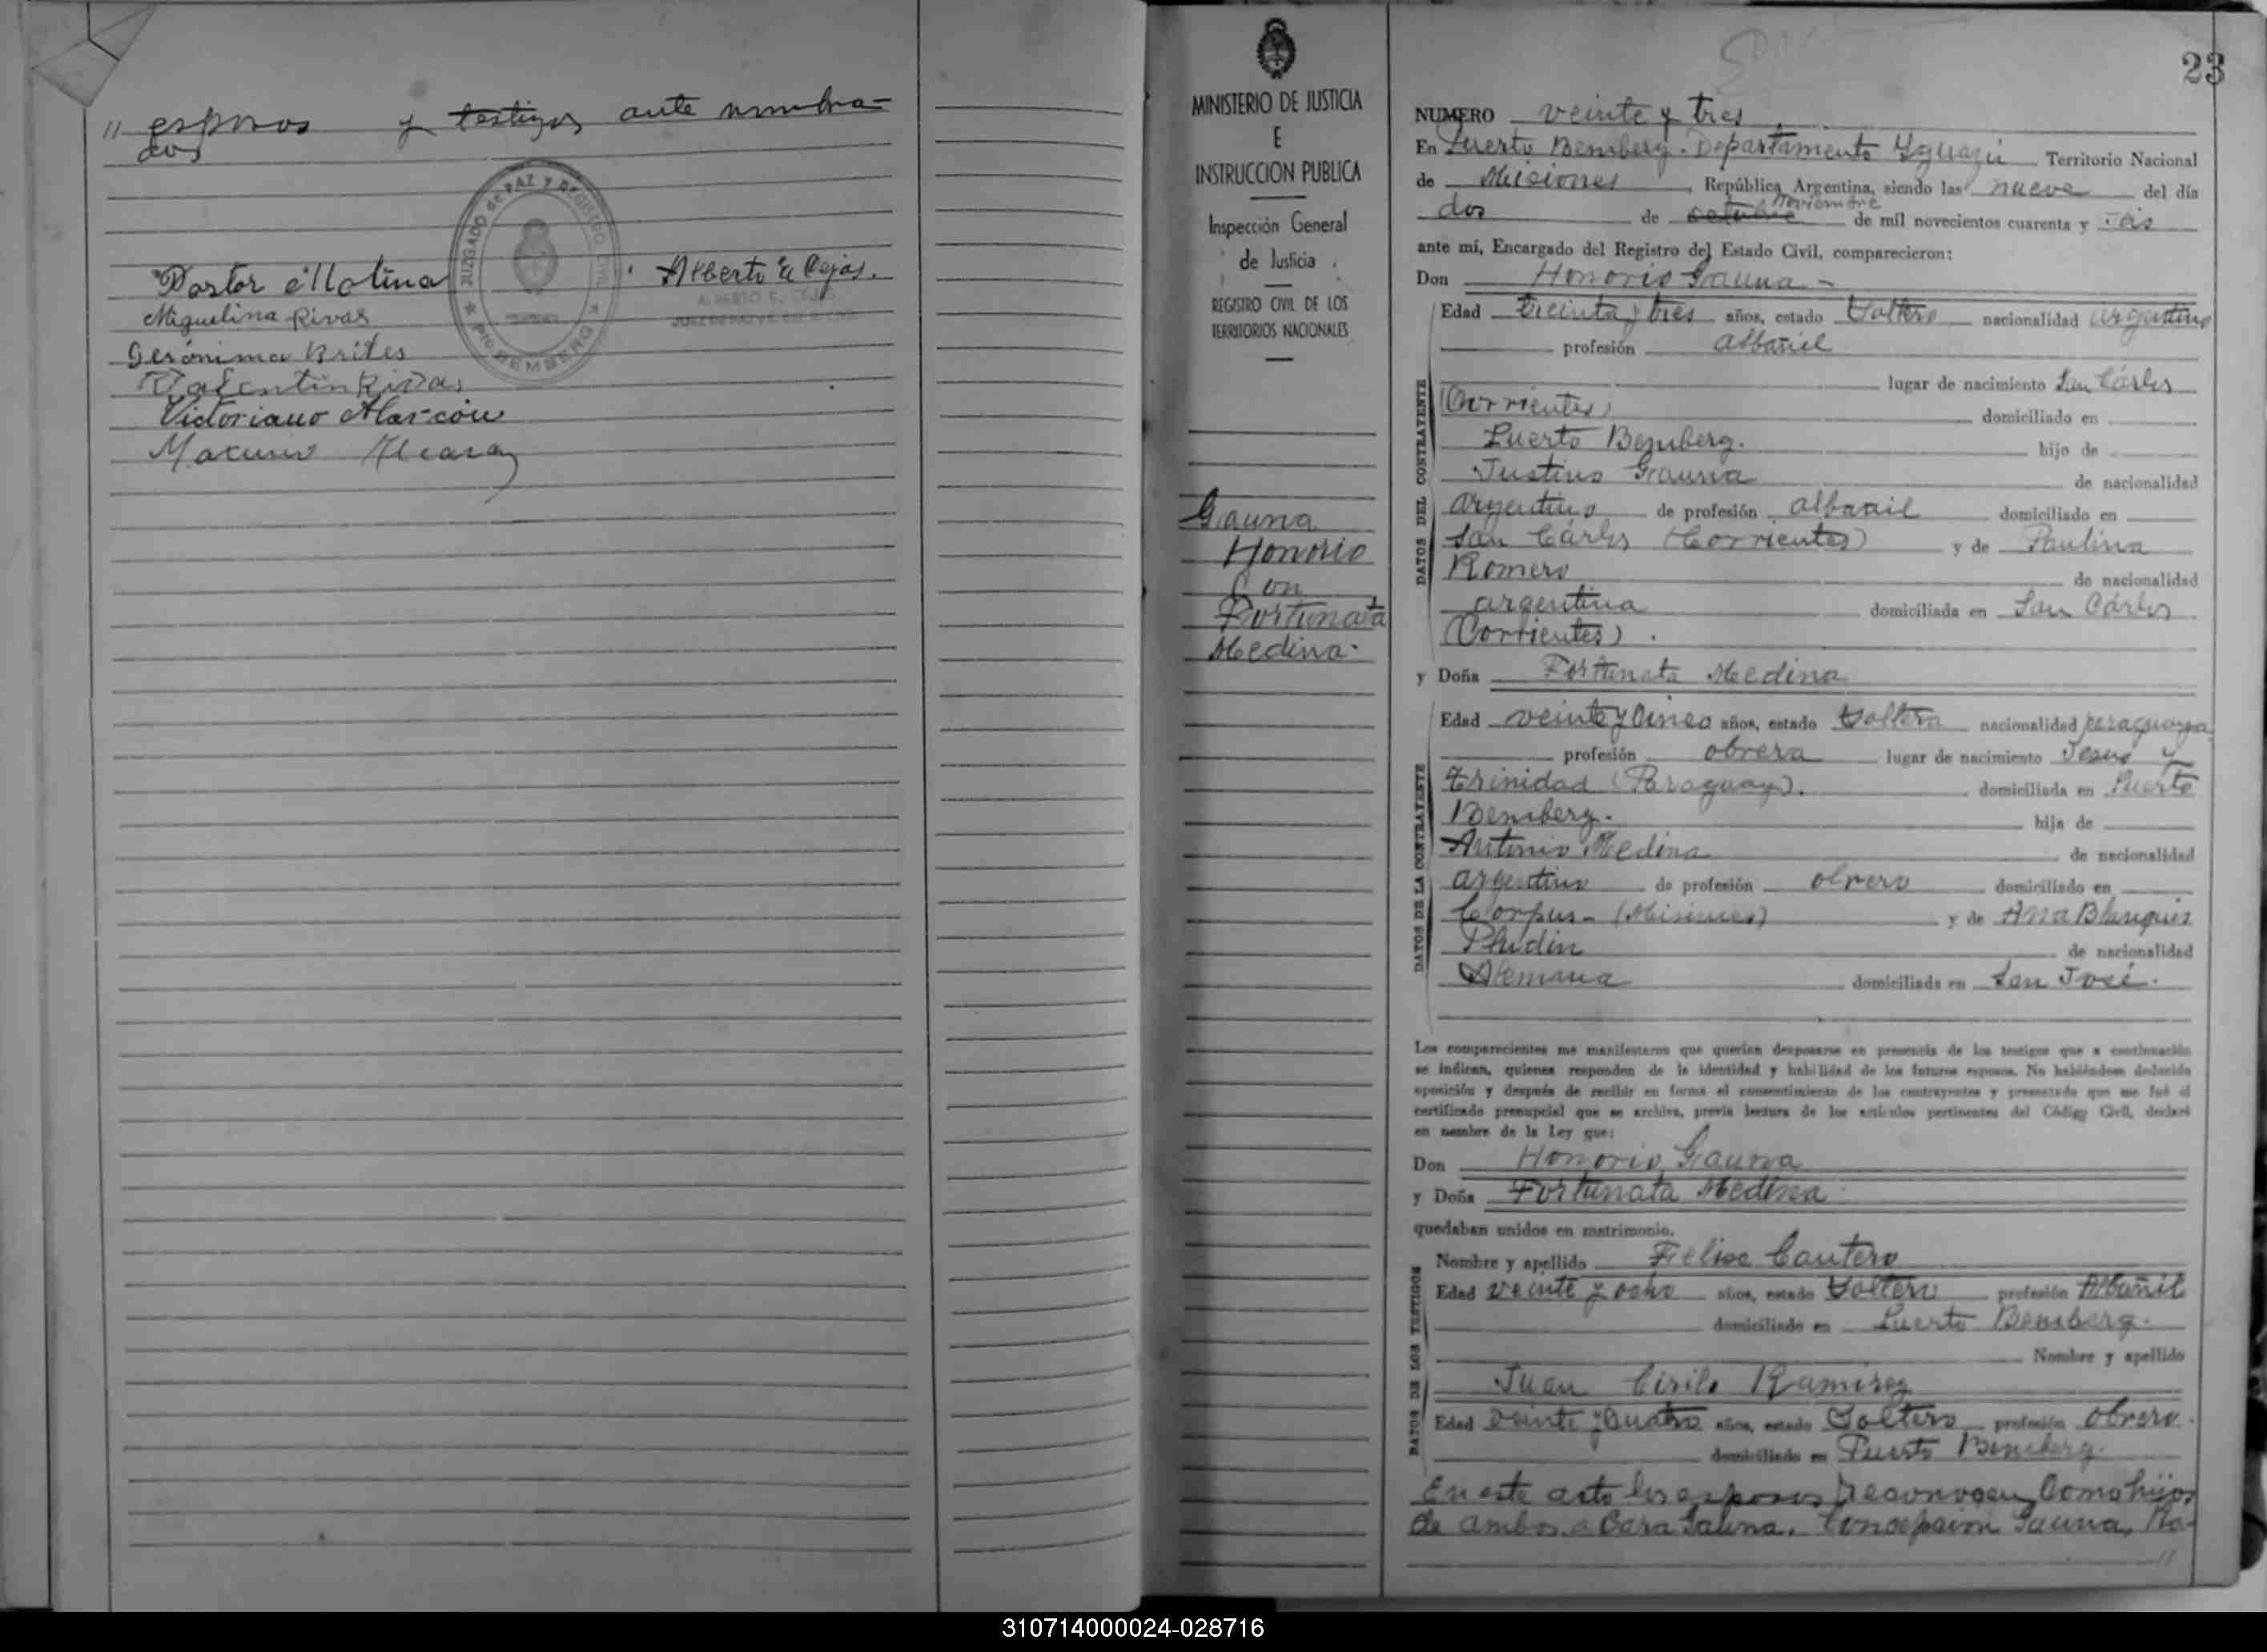 // esposos y testigos ante nombra-
dos
JUZGADO de PAZ Y REGISTRO CIVIL
Pto. BEMBERG
Pastor Molina
Alberto E Cejas.
ALBERTO E. CEJAS
Miguelina Rivas
Gerónima Brites
Valentin Rivas
Victoriano Alarcón
MINISTERIO DE JUSTICIA
E
INSTRUCCION PUBLICA
Inspección General
de Justicia
REGISTRO CIVIL DE LOS
TERRITORIOS NACIONALES
Gauna
Honorio
Con
Fortunata
Medina.
23
NUMERO veinte y tres
En Puerto Bemberg. Departamento Yguazú Territorio Nacional
de Misiones, República Argentina, siendo las nueve del día
noviembre
dos de octubre de mil novecientos cuarenta y
ante mí, Encargado del Registro del Estado Civil, comparecieron:
Don Honorio Gauna -
Edad treinta y tres años, estado Soltero nacionalidad argentino
profesión albañil
lugar de nacimiento San Cárlos
(Corrientes) domiciliado en
Puerto Bemberg. hijo de
Justino Gauna de nacionalidad
argentino de profesión albañil domiciliado en
San Cárlos (Corrientes) y de Paulina
Romero de nacionalidad
argentina domiciliada en San Cárlos
(Corrientes).
y Doña Fortunata Medina
Edad veinte y cinco años, estado Soltera nacionalidad paraguaya
profesión obrera lugar de nacimiento Jesus y
Trinidad (Paraguay). domiciliada en Puerto
Bemberg. hija de
Antonio Medina de nacionalidad
argentino de profesión obrero domiciliado en
Corpus - (Misiones) y de Ana
de nacionalidad
Alemana domiciliada en San José.
Los comparecientes me manifestaron que querían desposarse en presencia de los testigos que a continuación
se indican, quienes responden de la identidad y habilidad de los futuros esposos. No habiéndose deducido
oposición y después de recibir en forma el consentimiento de los contrayentes y presentado que me fué el
certificado prenupcial que se archiva, previa lectura de los artículos pertinentes del Código Civil, declaré
en nombre de la Ley que:
Don Honorio Gauna
y Doña Fortunata Medina
quedaban unidos en matrimonio.
Nombre y apellido Felix Cantero
Edad veinte y ocho años, estado Soltero profesión Albañil
domiciliado en Puerto Bemberg.
Nombre y apellido
Juan Cirilo Ramirez
Edad veinte y cuatro años, estado Soltero profesión obrero.
domiciliado en Puerto Bemberg.
En este acto los esposos reconocen como hijos
de ambos a Gauna, Concepcion Gauna,
//
DATOS DEL CONTRAYENTE
DATOS DE LA CONTRAYENTE
DATOS DE LOS TESTIGOS
310714000024-028716